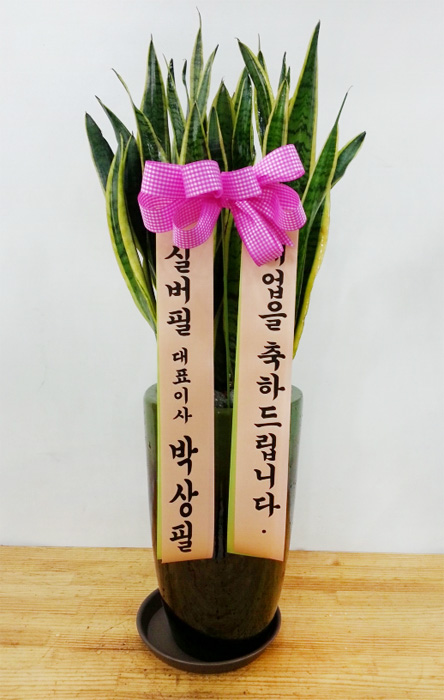 업을 축하드립니다.
실버필 대표이사 박상필